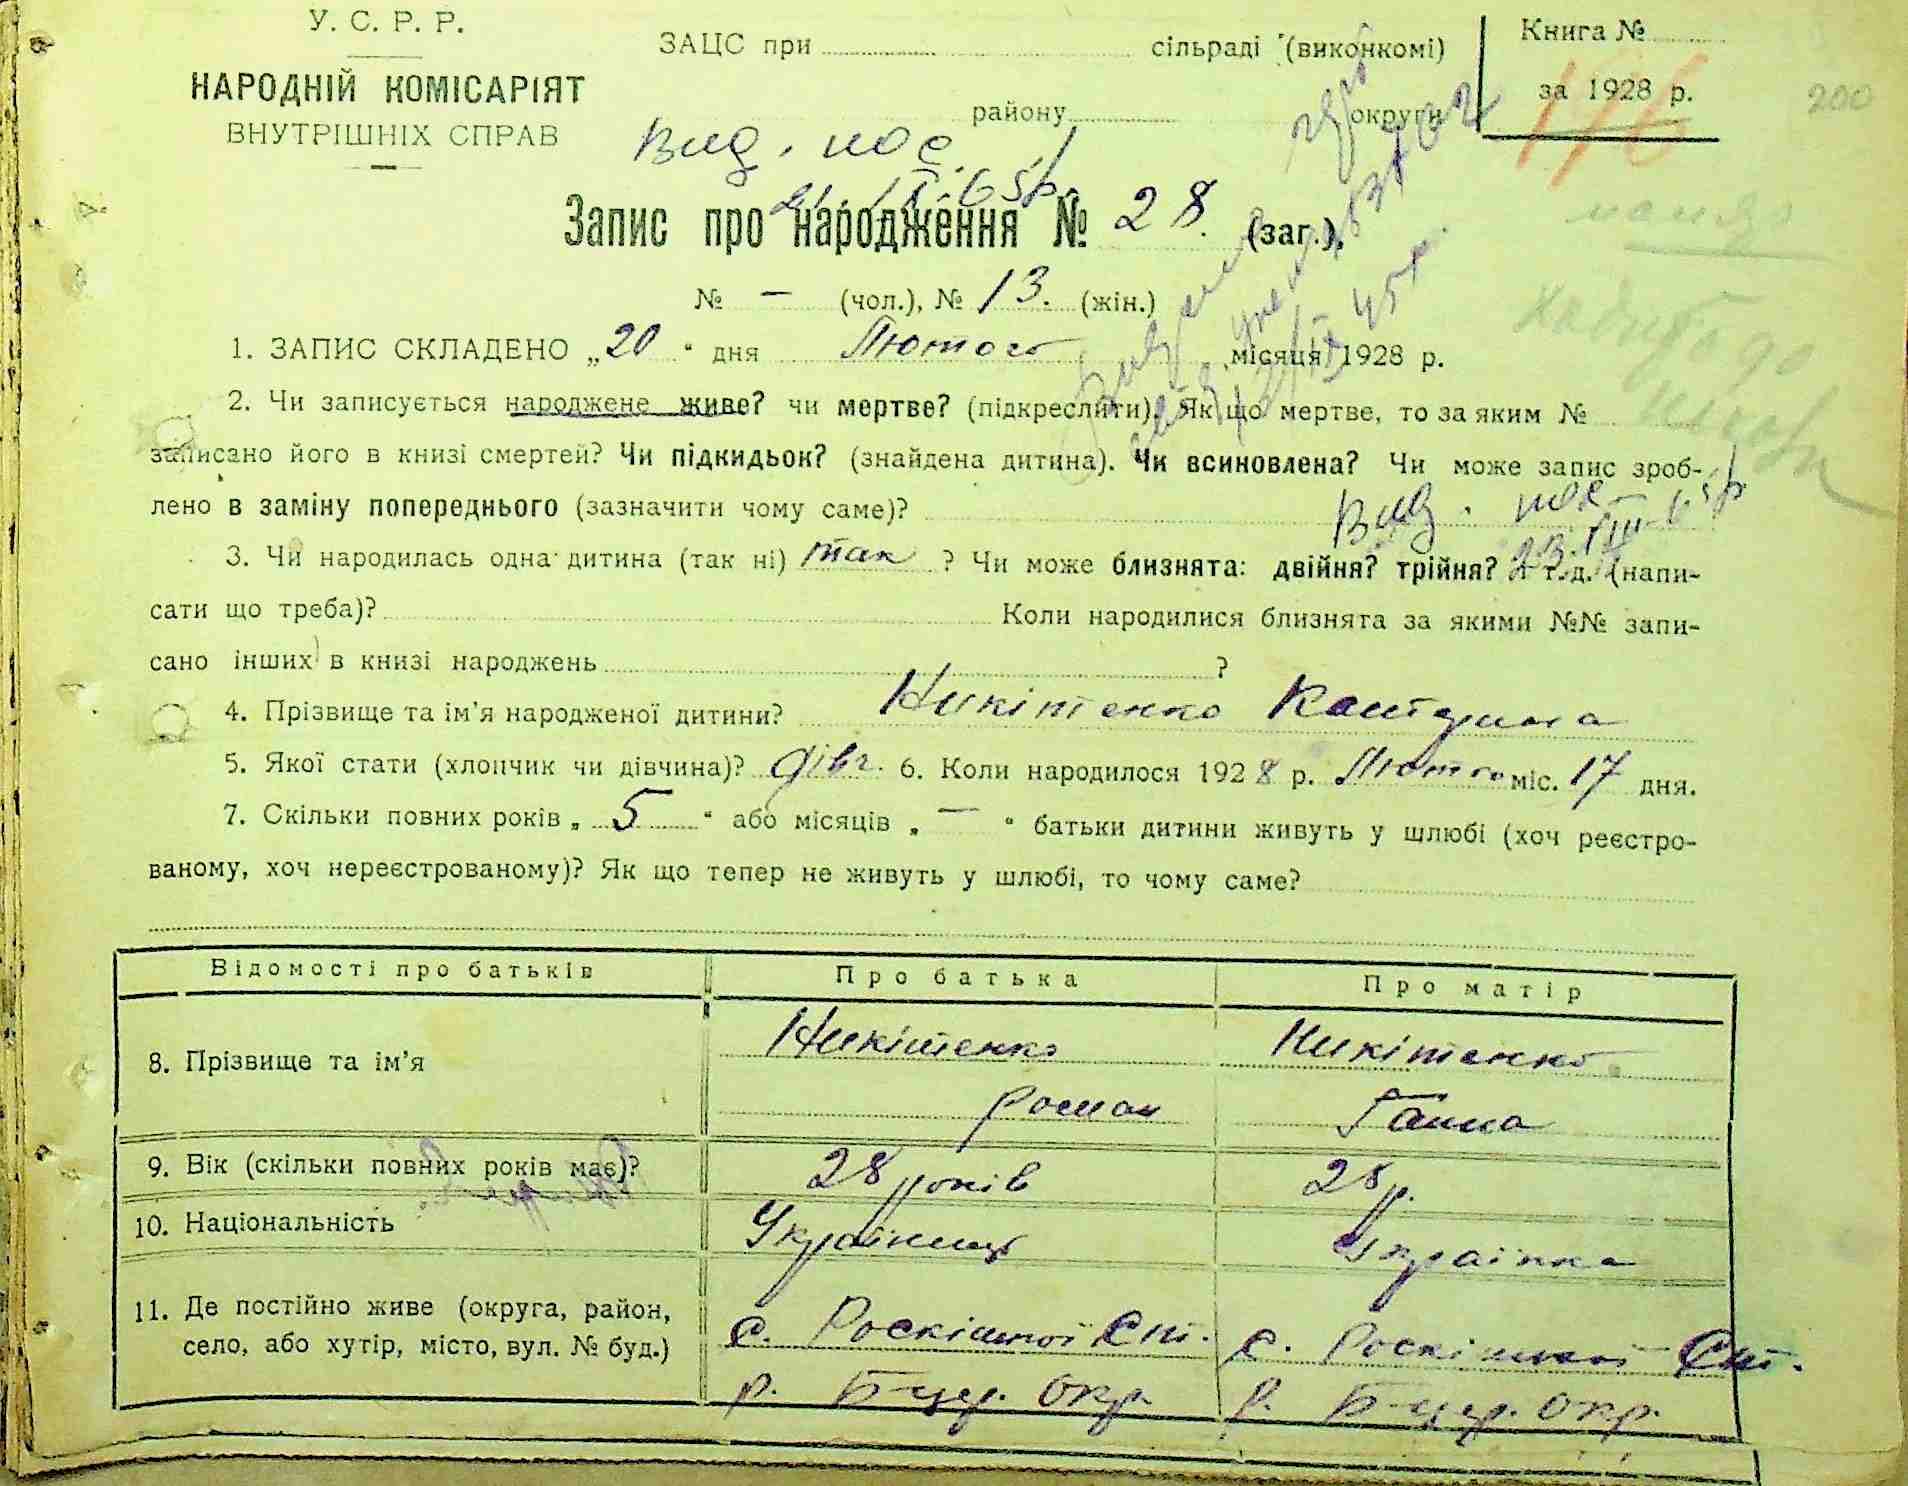 У. С. Р. Р.
НАРОДНІЙ КОМІСАРІЯТ
ВНУТРІШНІХ СПРАВ
ЗАЦС при сільраді (виконкомі)
району округи
Книга №
за 1928 р.
196
200
Вид. пос.
21.IX.65р
Запис про народження № 28. (заг.),
№ — (чол.), № 13. (жін.)
1. ЗАПИС СКЛАДЕНО „20“ дня Лютого місяця 1928 р.
2. Чи записується народжене живе? чи мертве? (підкреслити). Як що мертве, то за яким №
записано його в книзі смертей? Чи підкидьок? (знайдена дитина). Чи всиновлена? Чи може запис зроб-
лено в заміну попереднього (зазначити чому саме)?
Вид. пос.
3. Чи народилась одна дитина (так ні) так ? Чи може близнята: двійня? трійня? і т.д. (напи-
сати що треба)? Коли народилися близнята за якими №№ запи-
сано інших в книзі народжень ?
4. Прізвище та ім'я народженої дитини? Никітенко
5. Якої стати (хлопчик чи дівчина)? дівч. 6. Коли народилося 1928 р. Лютого міс. 17 дня.
7. Скільки повних років „5“ або місяців „—“ батьки дитини живуть у шлюбі (хоч реєстро-
ваному, хоч нереєстрованому)? Як що тепер не живуть у шлюбі, то чому саме?
Відомості про батьків Про батька Про матір
8. Прізвище та ім'я Никітенко Никітенко
Роман Ганна
9. Вік (скільки повних років має)? 28 років 28 р.
10. Національність Українець Українка
11. Де постійно живе (округа, район,
село, або хутір, місто, вул. № буд.)
с. Роскішної Ст. с. Роскішної Ст.
р. Б-цер. Окр. р. Б-цер. Окр.